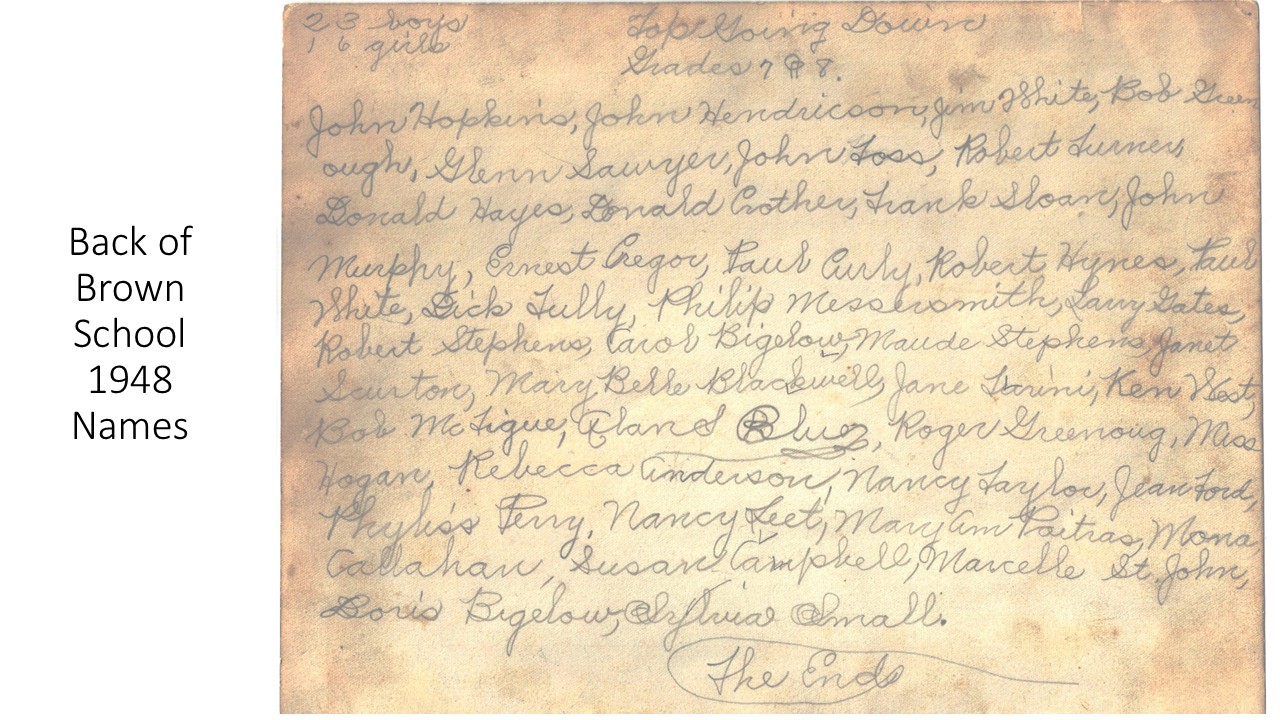 Back of
Brown
School
1948
Names
23 boys
16 girls
Top Going Down
Grades 7 & 8.
John Hopkins, John Hendricson, Jim White, Bob Green
ough, Glenn Sawyer, John Foss, Robert Turner,
Donald Hayes, Donald Crother, Frank Sloan, John
Murphy, Ernest Gregor, Paul Curly, Robert Hynes, Paul
White, Dick Tully, Philip Messersmith, Larry Gates,
Robert Stephens, Carol Bigelow, Maude Stephens, Janet
Scurton, Mary Belle Blackwell, Jane Farini, Ken West,
Bob McTigue, Alan S Blue, Roger Greenoug, Miss
Hogan, Rebecca Anderson, Nancy Taylor, Jean Ford,
Phyliss Perry, Nancy Leet, Mary Ann Poitras, Mona
Callahan, Susan Campbell, Marcelle St. John,
Doris Bigelow, Sylvia Small.
The Ends